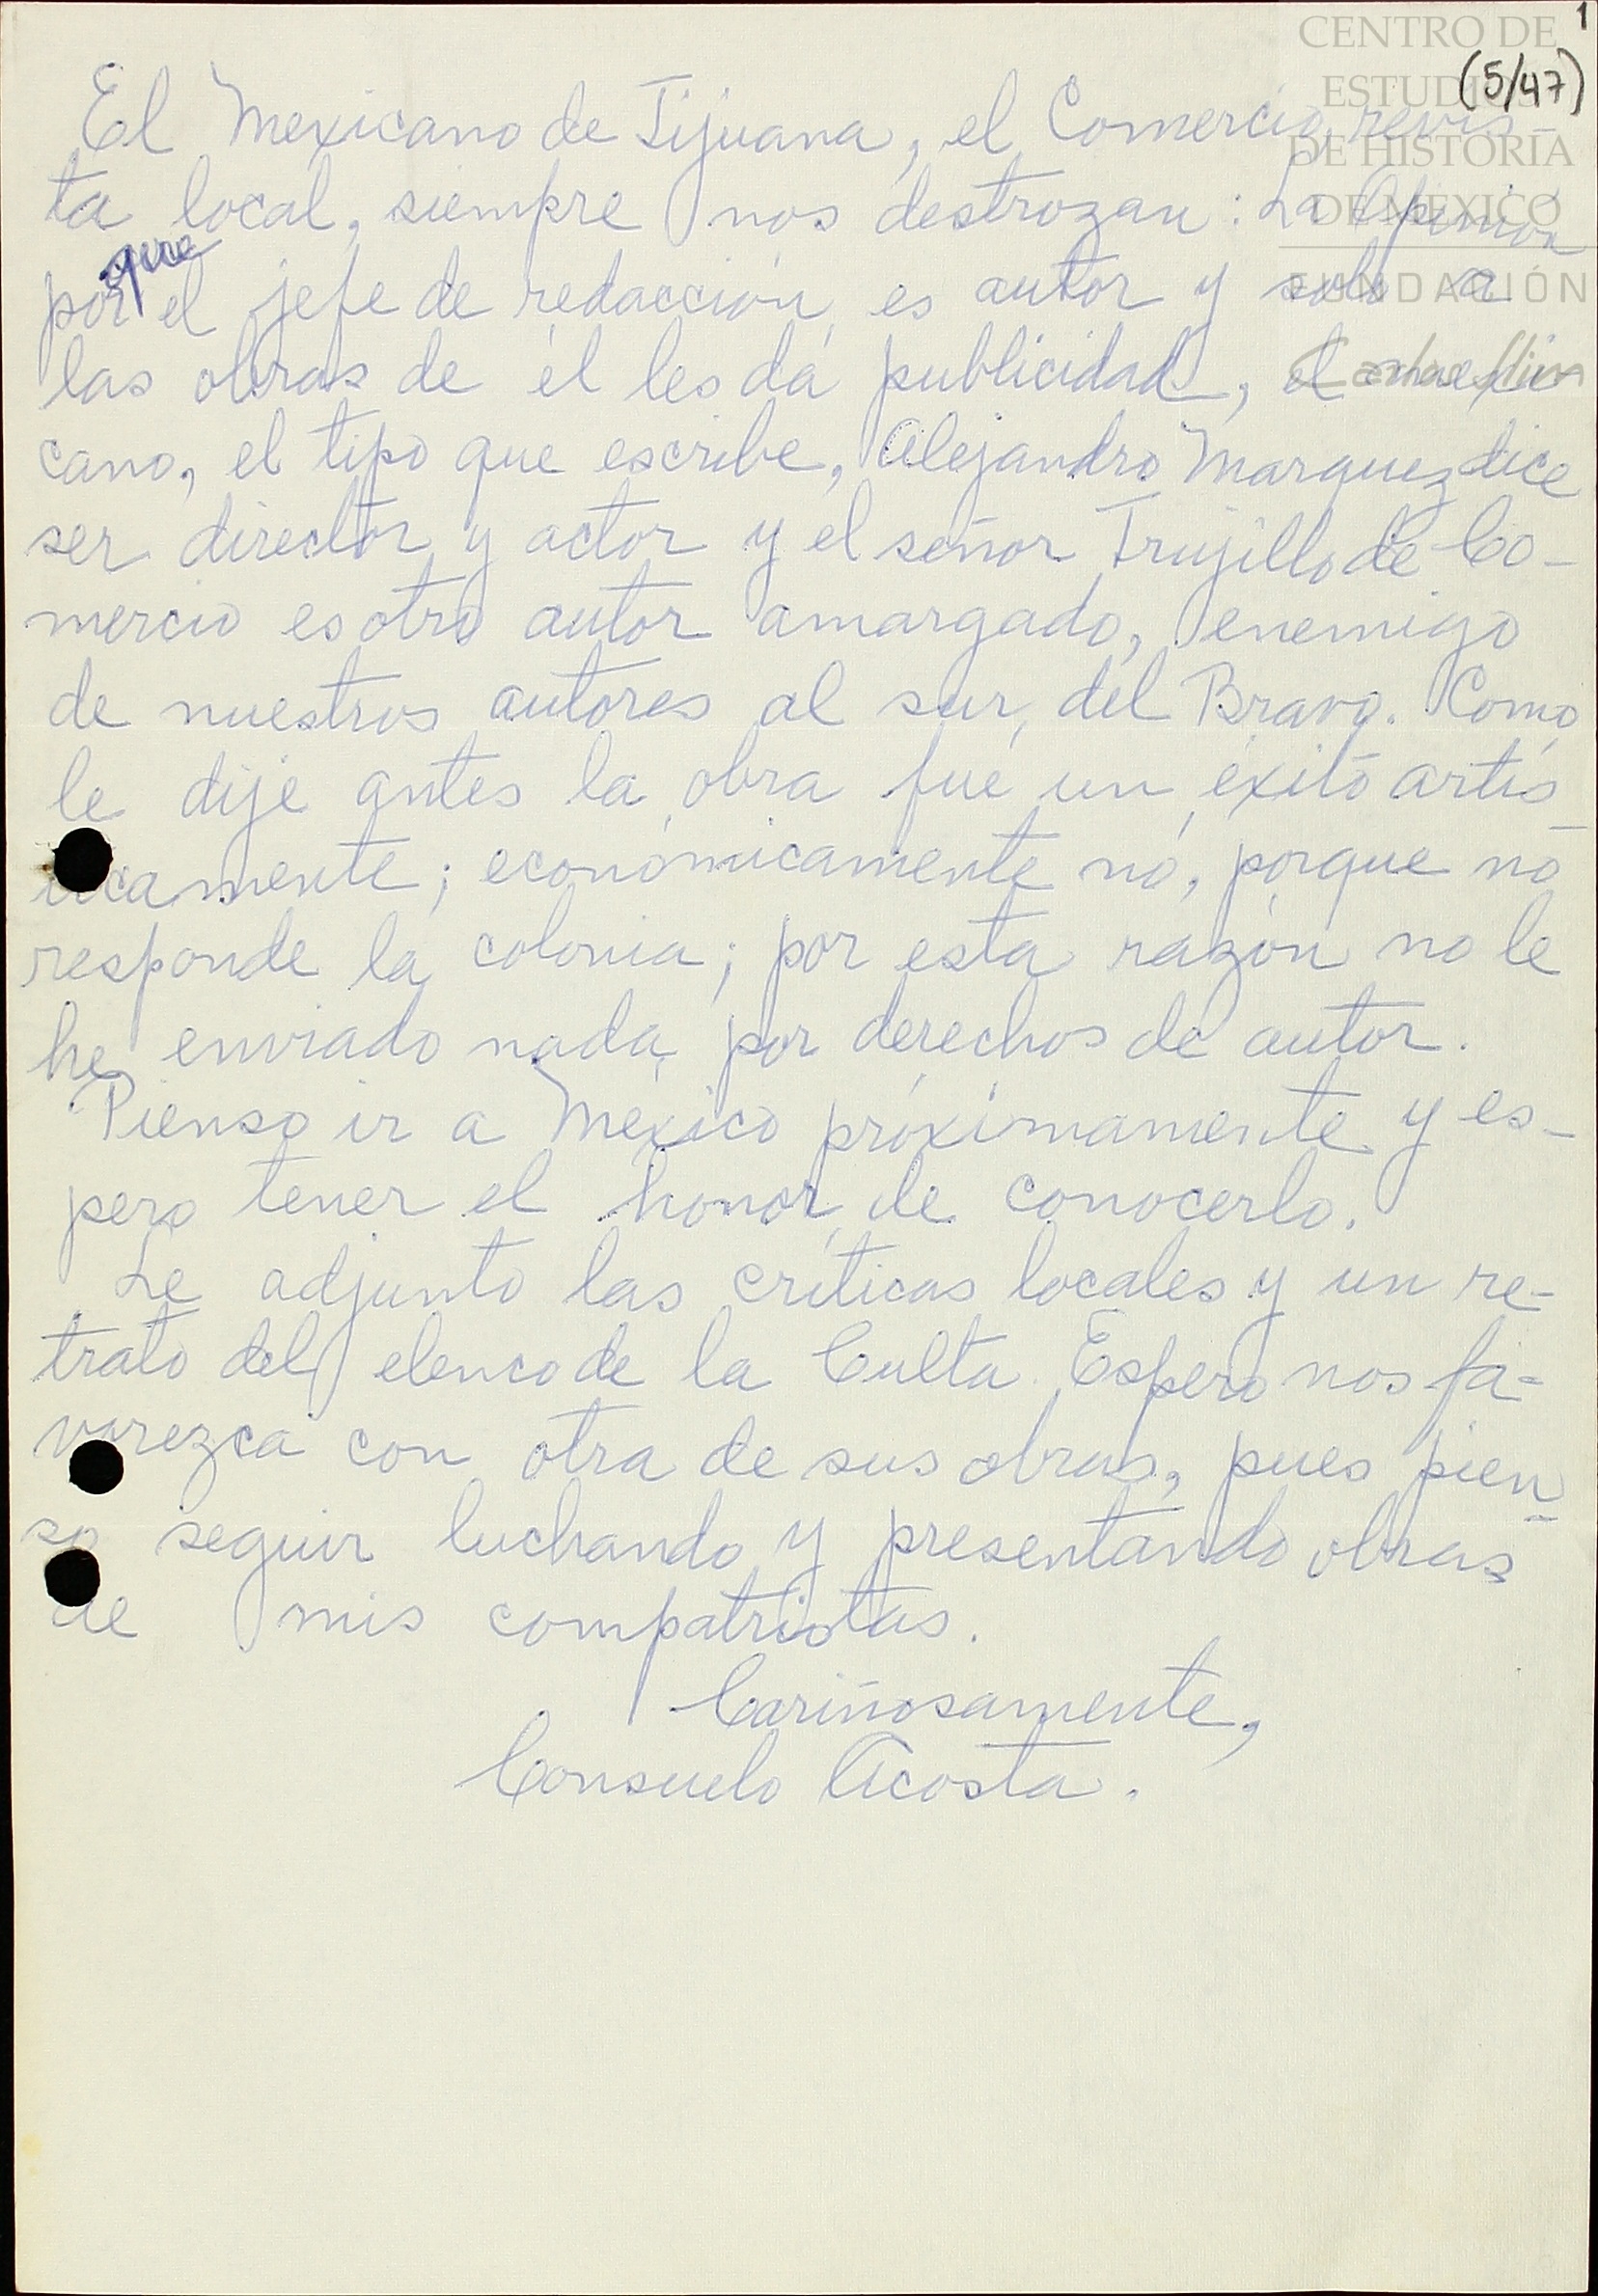 1
(5/47)
CENTRO DE
ESTUDIOS
DE HISTORIA
DE MEXICO
FUNDACIÓN
Carlos Slim
El Mexicano de Tijuana, el Comercio, revis-
ta local, siempre nos destrozan: La Opinión
porque el jefe de redacción es autor y solo a
las obras de él les dá publicidad, el mexi
cano, el tipo que escribe, Alejandro Marquez dice
ser director y actor y el señor Trujillo de Co-
mercio es otro autor amargado, enemigo
de nuestros autores al sur del Bravo. Como
le dije antes la obra fué un éxito artís-
ticamente; económicamente no, porque no
responde la colonia; por esta razón no le
he enviado nada por derechos de autor.
Pienso ir a México próximamente y es-
pero tener el honor de conocerlo.
Le adjunto las críticas locales y un re-
trato del elenco de la Culta. Espero nos fa-
vorezca con otra de sus obras, pues pien-
so seguir luchando y presentando obras
de mis compatriotas.
Cariñosamente,
Consuelo Acosta.